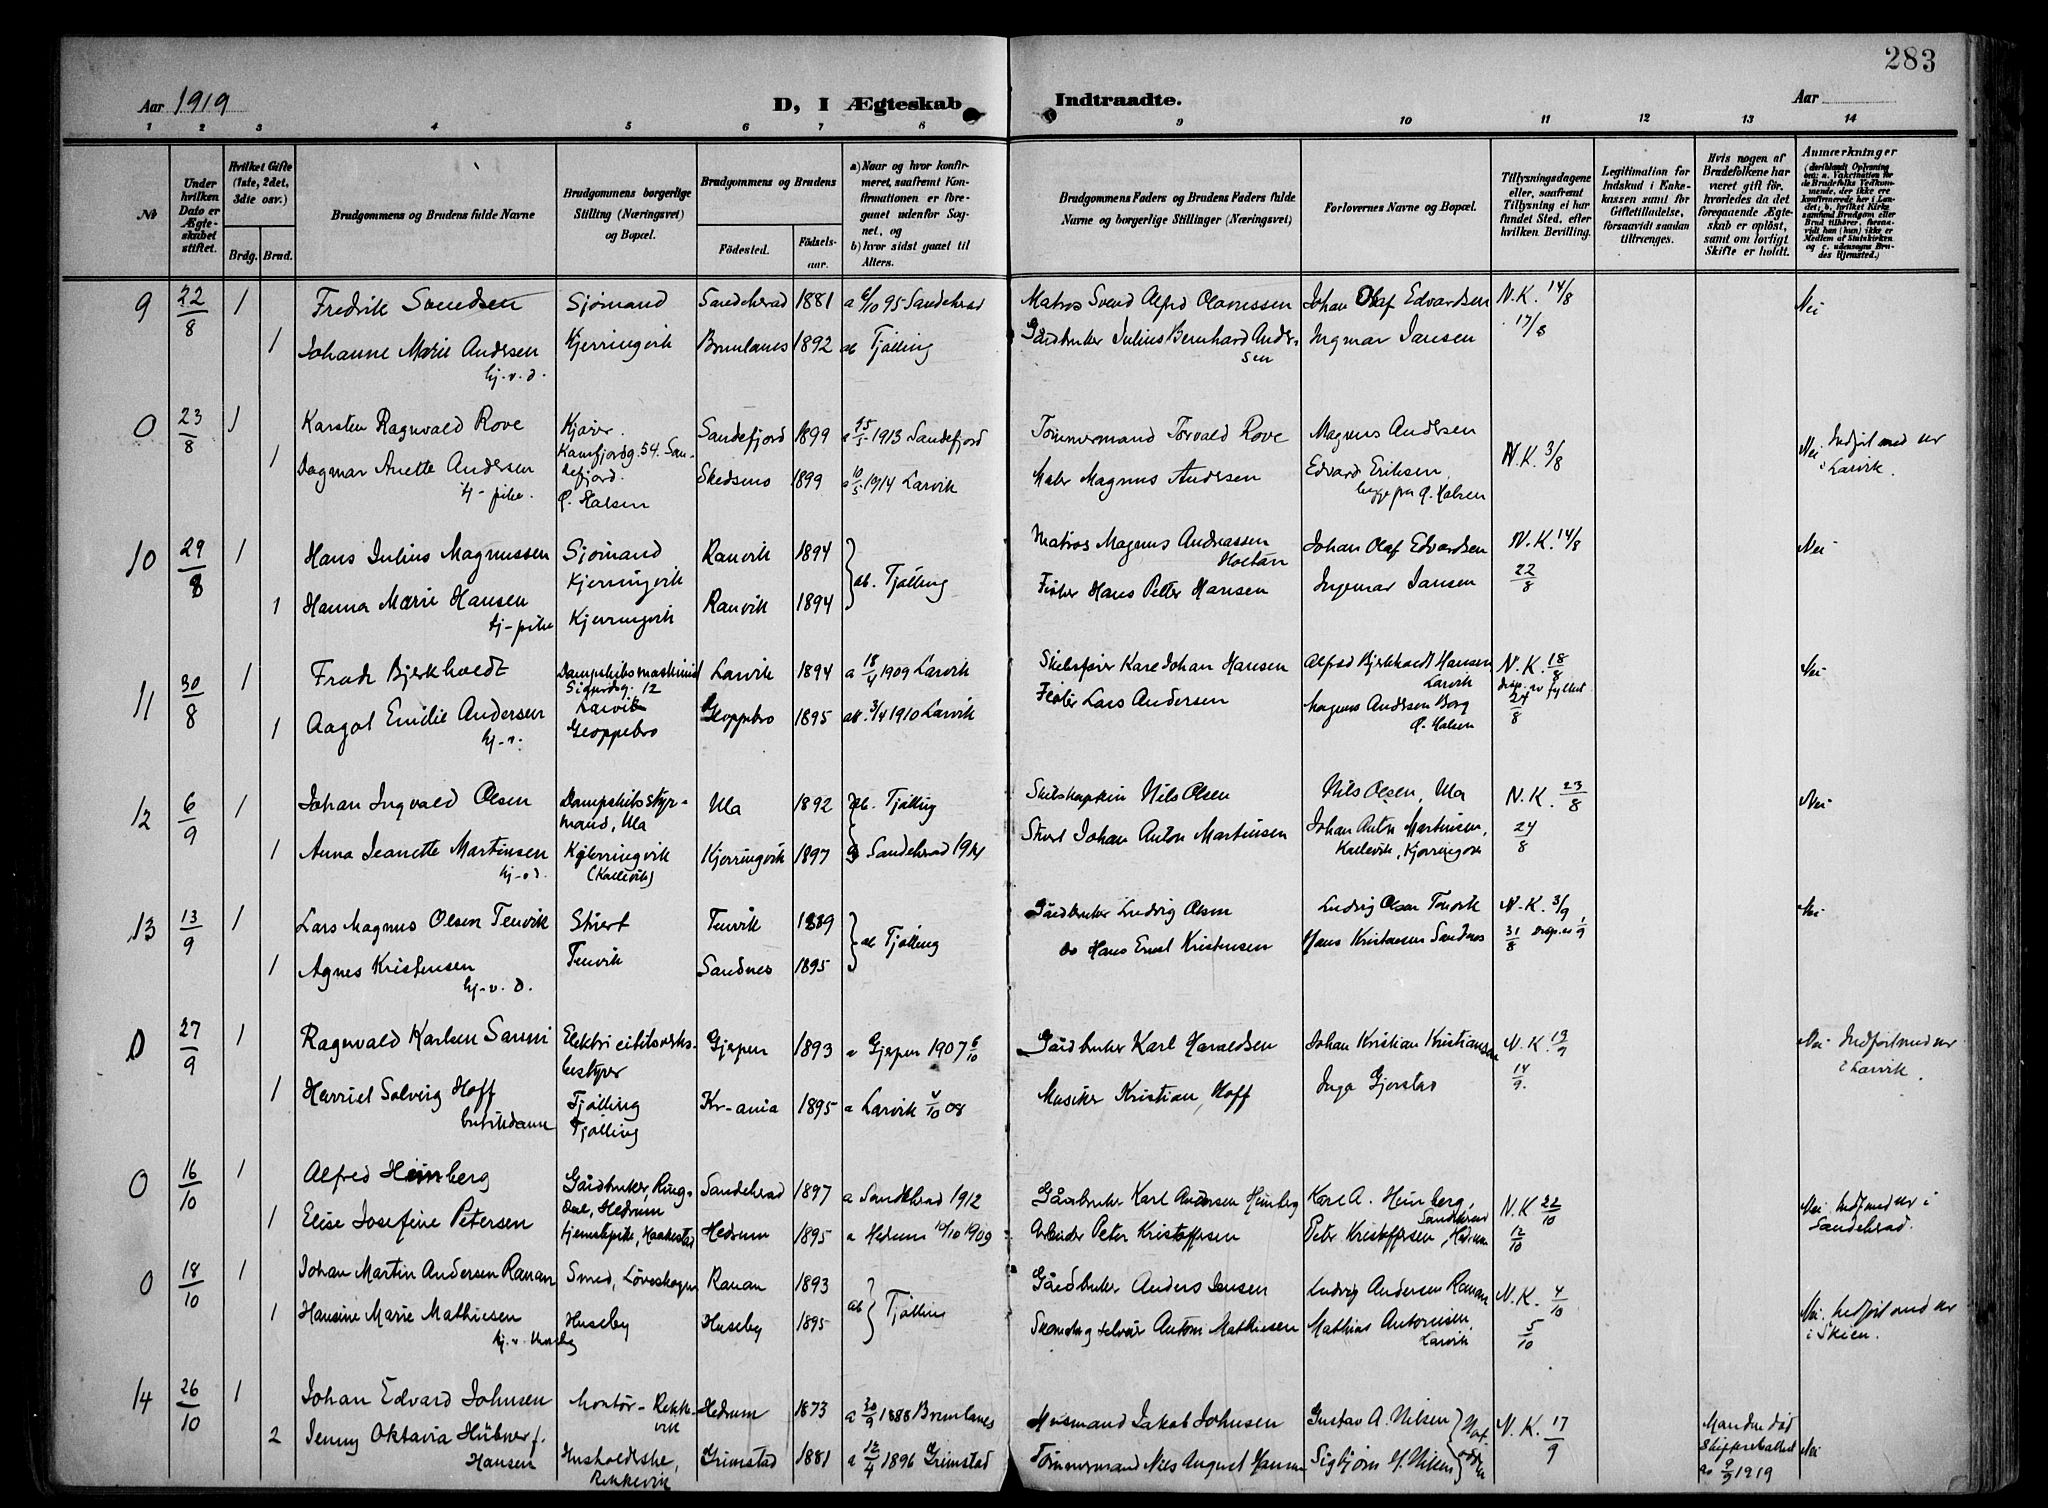 283
Aar 1919
D, I Ægteskab Indtraadte.
Aar
1 2 3 4 5 6 7 8 9 10 11 12 13 14
№
Under hvilken Dato er Ægteskabet stiftet.
Hvilket Gifte (1ste, 2det, 3die osv.)
Brdg. Brud.
Brudgommens og Brudens fulde Navne
Brudgommens borgerlige Stilling (Næringsvei) og Bopæl.
Brudgommens og Brudens
Fødested. Fødselsaar.
a) Naar og hvor konfirmeret, saafremt Konfirmationen er foregaaet udenfor Sognet, og
b) hvor sidst gaaet til Alters.
Brudgommens Faders og Brudens Faders fulde Navne og borgerlige Stillinger (Næringsvei)
Forlovernes Navne og Bopæl.
Tillysningsdagene eller, saafremt Tillysning ei har fundet Sted, efter hvilken Bevilling.
Legitimation for Indskud i Enkekassen samt for Giftetilladelse, forsaavidt saadan tiltrænges.
Hvis nogen af Brudefolkene har været gift før, hvorledes da det foregaaende Ægteskab er opløst, samt om lovligt Skifte er holdt.
Anmærkninger
9 22/8 1 Fredrik Svendsen Sjømand Sandeherad 1881 a 6/10 95 Sandeherad Matros Svend Alfred Olavessen Johan Olaf Edvardsen N.K. 14/8 Nei
1 Johanne Marie Andersen Kjerringvik Brunlanes 1892 ab Tjølling Gårdbruker Julius Bernhard Andersen Ingmar Jansen 17/8
hj. v. d.
0 23/8 1 Karsten Ragnvald Rove Kjører. Sandefjord 1899 a 1913 Sandefjord Tømmermand Torvald Rove Magnus Andersen N.K. 3/8 Nei Indført med nr i Larvik.
Kamfjordg. 54. Sandefjord.
1 Dagmar Anette Andersen Ø. Halsen Skedsmo 1899 a 10/5 1914 Larvik Maler Magnus Andersen Edvard Eriksen
tj-pike. begge fra Ø. Halsen
10 29/8 1 Hans Julius Magnussen Sjømand Ranvik 1894 ab. Tjølling Matros Magnus Andreassen Holtan Johan Olaf Edvardsen N.K. 14/8 Nei
Kjerringvik
1 Hanna Marie Hansen Kjerringvik Ranvik 1894 Fisker Hans Petter Hansen Ingemar Jansen 22/8
tj-pike
11 30/8 1 Frode Bjerkholdt Dampskibsmaskinist Larvik 1894 a 18/4 1909 Larvik Skibsfører Karl Johan Hansen Alfred Bjerkholdt Hansen, Larvik N.K. 18/8 Nei
Sigurdsg. 12 Larvik
1 Aagot Emilie Andersen Gloppebro Gloppebro 1895 ab. 3/4 1910 Larvik Fisker Lars Andersen Magnus Andersen Borg Ø. Halsen
12 6/9 1 Johan Ingvald Olsen Dampskibsstyrmand, Ula Ula 1892 ab. Tjølling Skibskaptein Nils Olsen Nils Olsen, Ula N.K. 23/8 Nei
1 Anna Jeanette Martinsen Kjerringvik (Kallevik) Kjerringvik 1897 Sandeherad 1914 Stuert Johan Anton Martinsen Johan Anton Martinsen, Kallevik, Kjerringvik 24/8
13 13/9 1 Lars Magnus Olsen Tenvik Stuert Tenvik 1889 ab Tjølling Gårdbruker Ludvig Olsen Ludvig Olsen Tenvik N.K. 3/9 Nei
1 Agnes Kristensen Tenvik Sandnes 1895 do Hans Emil Kristensen Hans Kristensen Sandnes 31/8
hj. v. d.
0 27/9 1 Ragnvald Karlsen Sanni Elektricitetsverksbestyrer Gjerpen 1893 a Gjerpen 1907 6/10 Gårdbruker Karl Haraldsen Johan Kristian Kristiansen N.K. 13/9 Nei Indført med nr i Larvik.
Tjølling
1 Harriet Solveig Hoff Tjølling Kr-ania 1895 a Larvik 4/10 08 Musiker Kristian Hoff Inga Gjerstad 14/9.
butikdame
0 16/10 1 Alfred Heimberg Gårdbruker, Ringdal, Hedrum Sandeherad 1897 a Sandeherad 1912 Gårdbruker Karl Andersen Heimberg Karl A. Heimberg, Sandeherad N.K 22/10 Nei Indf med nr i Sandeherad.
1 Elise Josefine Petersen hjemstspike, Haakestad Hedrum 1895 a Hedrum 10/10 1909 Arbeider Peter Kristoffersen Peter Kristoffersen, Hedrum 12/10
0 18/10 1 Johan Martin Andersen Ranan Smed, Løveskogen Ranan 1893 ab Tjølling Gårdbruker Anders Jansen Ludvig Andersen Ranan N.K. 4/10 Nei. Indført med nr i Skien.
1 Hansine Marie Mathiesen Huseby Huseby 1895 Anton Mathiesen Mathias Antonisen, Larvik 5/10
hj. v. Huseby
14 26/10 1 Johan Edvard Johnsen Montør - Rekkevik Hedrum 1873 a 30/9 1888 Brunlanes Husmand Jakob Johnsen Gustav A. Nilsen N.K. 17/9 Nei
2 Jenny Oktavia Hübner f. Hansen Husholderske, Rekkevik Grimstad 1881 a 12/4 1896 Grimstad Tømmermand Nils August Hansen Sigbjørn H. Nilsen
Manden død
1919